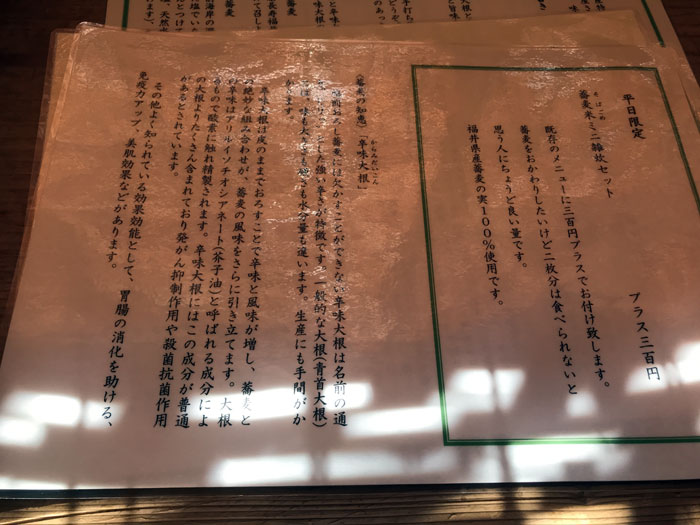 平日限定
そばごめ
蕎麦米ミニ雑炊セット
プラス三百円
既存のメニューに三百円プラスでお付け致します。
蕎麦をおかわりしたいけど二枚分は食べられないと
思う人にちょうど良い量です。
福井県産蕎麦の実100%使用です。
(蕎麦の知恵)「辛味大根」
からみだいこん
おろし蕎麦には欠かすことができない辛味大根は名前の通
した強い辛さが特徴です。一般的な大根(青首大根)
味も大きさも水分量も違います。生産にも手間がか
かります。
辛味大根は皮のままでおろすことで辛味と風味が増し、蕎麦と
の絶妙な組み合わせが、蕎麦の風味をさらに引き立てます。大根
の辛味はアリルイソチオシアネート(芥子油)と呼ばれる成分によ
るもので酸素に触れ精製されます。辛味大根にはこの成分が普通
の大根よりたくさん含まれており発がん抑制作用や殺菌抗菌作用
があるとされています。
その他よく知られている効果効能として、胃腸の消化を助ける、
免疫力アップ、美肌効果などがあります。